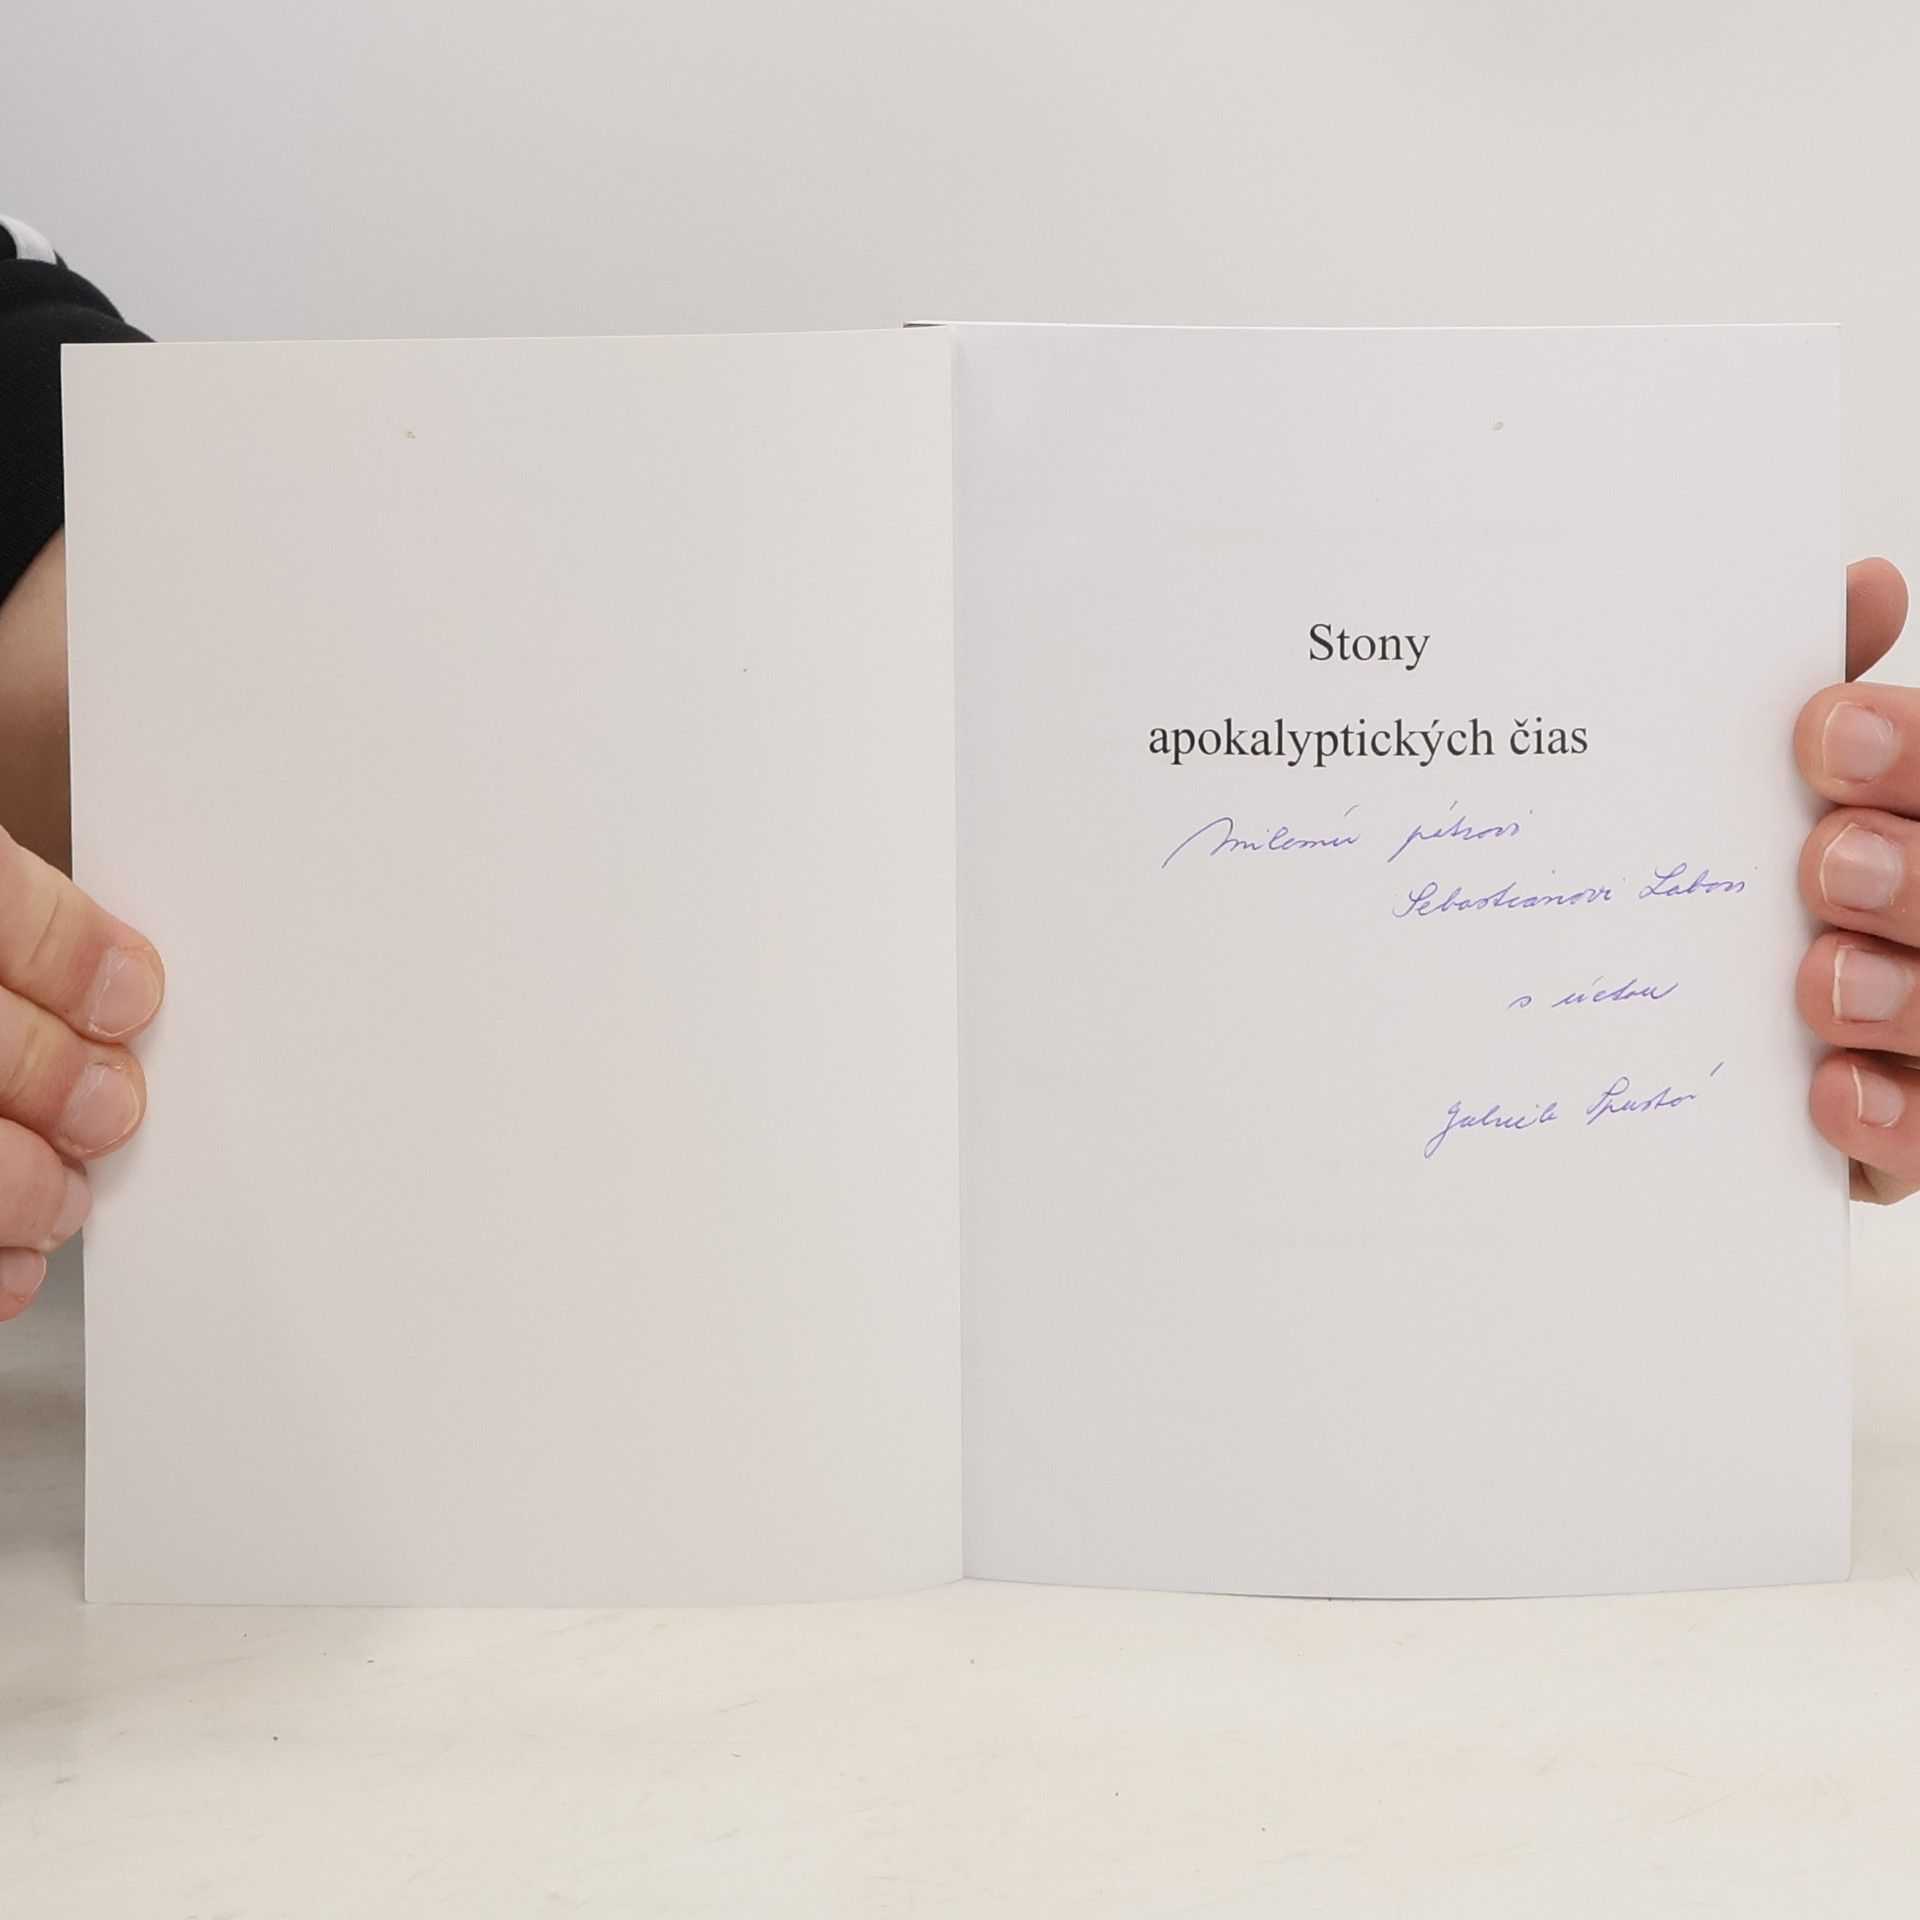 Stony
apokalyptických čias
Milému pátrovi
Sebastiánovi Labovi
s úctou
Gabriela Spustová